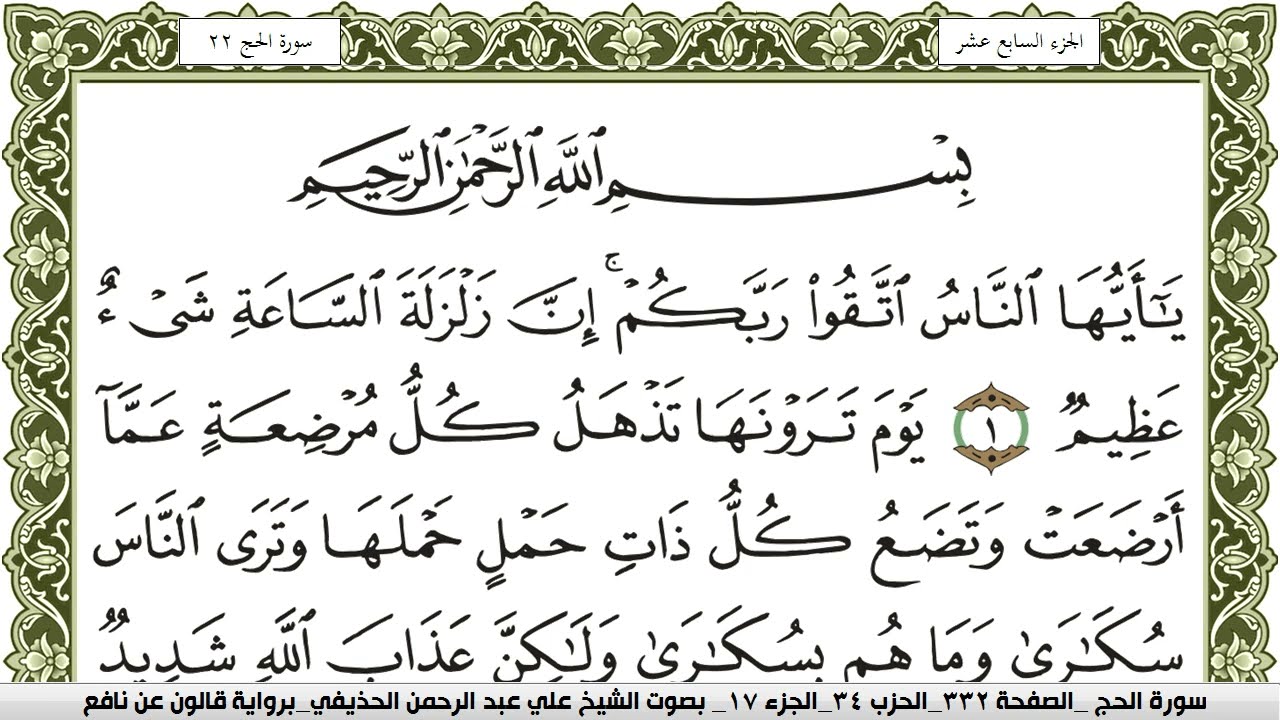 الجزء السابع عشر
سورة الحج ٢٢
بِسْمِ ٱللَّهِ ٱلرَّحْمَٰنِ ٱلرَّحِيمِ
يَٰٓأَيُّهَا ٱلنَّاسُ ٱتَّقُوا۟ رَبَّكُمْ ۚ إِنَّ زَلْزَلَةَ ٱلسَّاعَةِ شَىْءٌ
عَظِيمٌ ١ يَوْمَ تَرَوْنَهَا تَذْهَلُ كُلُّ مُرْضِعَةٍ عَمَّآ
أَرْضَعَتْ وَتَضَعُ كُلُّ ذَاتِ حَمْلٍ حَمْلَهَا وَتَرَى ٱلنَّاسَ
سُكَٰرَىٰ وَمَا هُم بِسُكَٰرَىٰ وَلَٰكِنَّ عَذَابَ ٱللَّهِ شَدِيدٌ
سورة الحج _الصفحة ٣٣٢_الحزب ٣٤_الجزء ١٧_ بصوت الشيخ علي عبد الرحمن الحذيفي_برواية قالون عن نافع